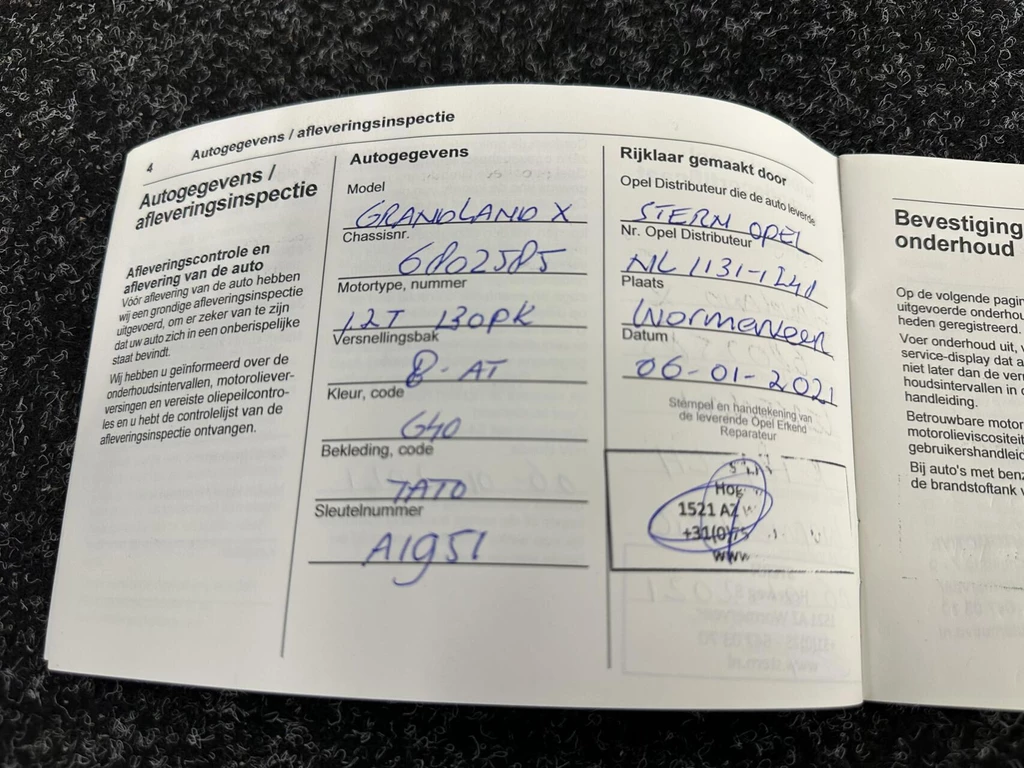 4 Autogegevens / afleveringsinspectie
Autogegevens /
afleveringsinspectie
Afleveringscontrole en
aflevering van de auto
Vóór aflevering van de auto hebben
wij een grondige afleveringsinspectie
uitgevoerd, om er zeker van te zijn
dat uw auto zich in een onberispelijke
staat bevindt.
Wij hebben u geïnformeerd over de
onderhoudsintervallen, motoroliever-
versingen en vereiste oliepeilcontro-
les en u hebt de controlelijst van de
afleveringsinspectie ontvangen.
Autogegevens
Model
GRANDLAND X
Chassisnr.
6802585
Motortype, nummer
1.2T 130PK
Versnellingsbak
8-AT
Kleur, code
G40
Bekleding, code
TATO
Sleutelnummer
A1951
Rijklaar gemaakt door
Opel Distributeur die de auto leverde
STERN OPEL
Nr. Opel Distributeur
NL 1131-1241
Plaats
Wormerveer
Datum
06-01-2021
Stempel en handtekening van
de leverende Opel Erkend
Reparateur
1521 AZ
+31(0)75
www
Bevestiging
onderhoud
Op de volgende
uitgevoerde
heden geregistreerd.
Voer onderhoud uit,
service-display dat
niet later dan de
houdsintervallen in
handleiding.
Betrouwbare
motorolieviscositeit
Bij auto's met
de brandstoftank